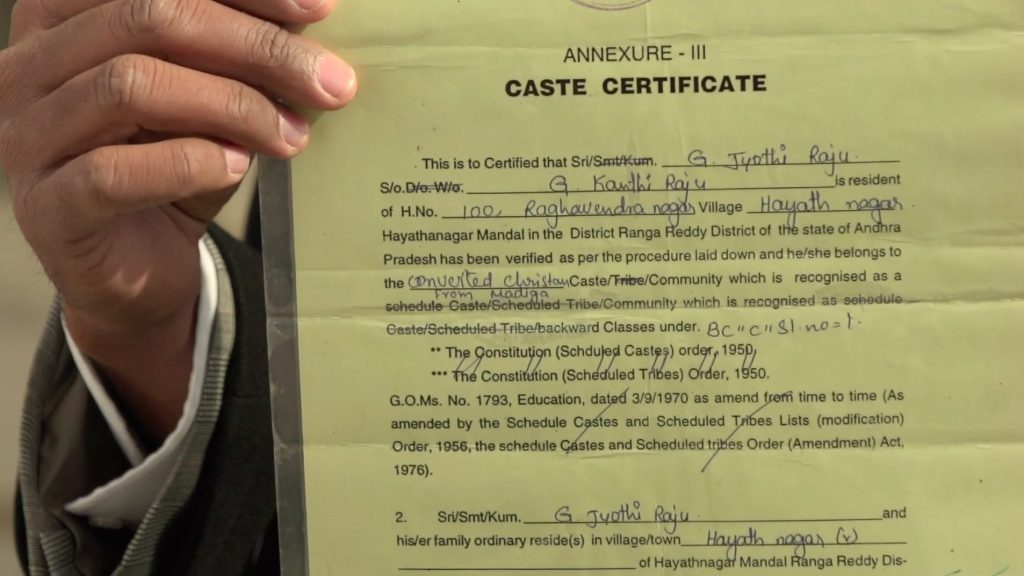 ANNEXURE - III
CASTE CERTIFICATE
This is to Certified that Sri/Smt/Kum. G. Jyothi Raju.
S/o.D/o. W/o. G. Kanthi Raju is resident
of H.No. 100, Raghavendra nagar Village Hayath nagar.
Hayathanagar Mandal in the District Ranga Reddy District of the state of Andhra
Pradesh has been verified as per the procedure laid down and he/she belongs to
the Converted Christian Caste/Tribe/Community which is recognised as a
From Madiga
schedule Caste/Scheduled Tribe/Community which is recognised as schedule
Caste/Scheduled Tribe/backward Classes under. BC "C" Sl. no = 1.
** The Constitution (Schduled Castes) order, 1950,
*** The Constitution (Scheduled Tribes) Order, 1950.
G.O.Ms. No. 1793, Education, dated 3/9/1970 as amend from time to time (As
amended by the Schedule Castes and Scheduled Tribes Lists (modification)
Order, 1956, the schedule Castes and Scheduled tribes Order (Amendment) Act,
1976).
2. Sri/Smt/Kum. G. Jyothi Raju. and
his/er family ordinary reside(s) in village/town Hayath nagar (v)
of Hayathnagar Mandal Ranga Reddy Dis-